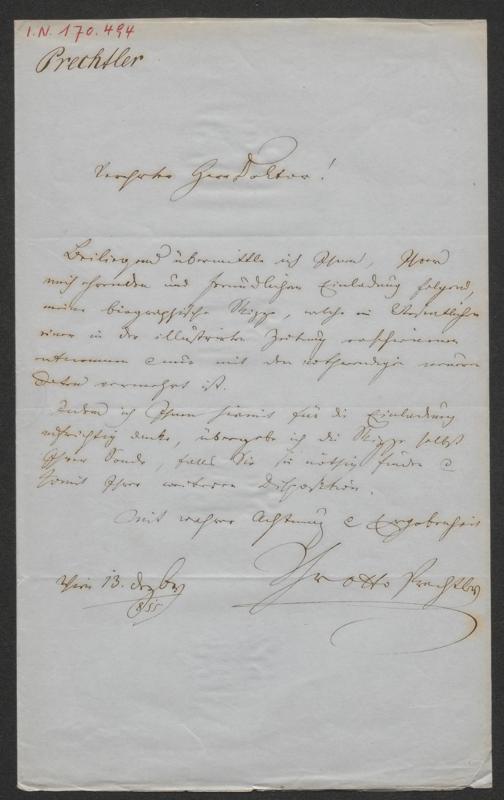 I.N. 170.494
Prechtler
Verehrter Herr Doktor!
Beiliegend übermittle ich Ihnen, Ihrer
mich ehrenden und freundlichen Einladung folgend,
meine biographische Skizze, welche im Wesentlichen
einer in der illustrirten Zeitung erschienenen
entnommen & nur mit den nothwendigen neuern
Daten vermehrt ist.
Indem ich Ihnen hiemit für die Einladung
aufrichtig danke, übergebe ich die Skizze selbst
Ihrer, falls Sie sie nöthig finden &
somit Ihrer weiteren Disposition.
Mit wahrer Achtung & Ergebenheit
Ihr Otto Prechtler
Wien 13. Dezbr
855